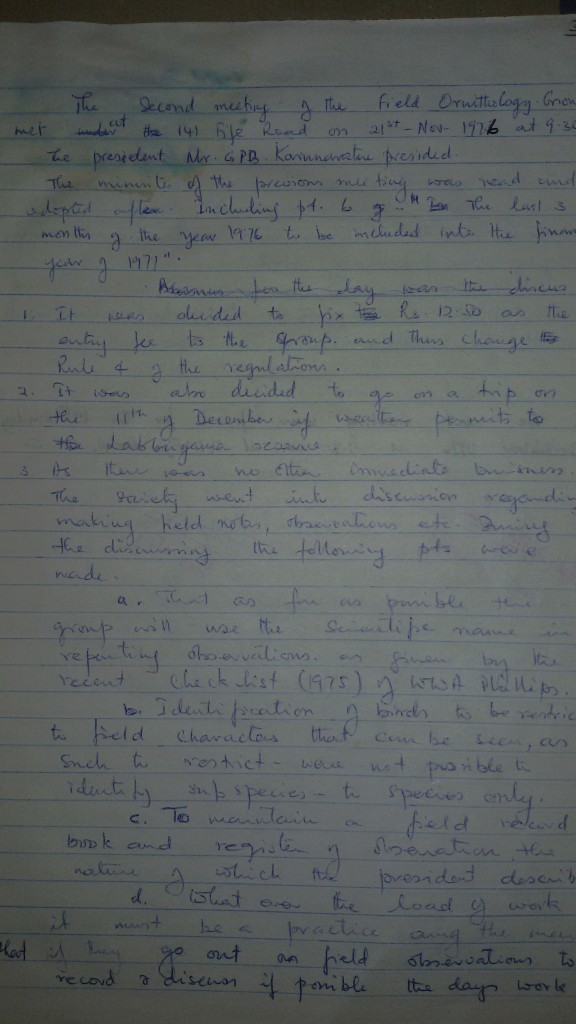 The Second meeting of the Field Ornithology Grou
met at 141 Fife Road on 21st - Nov - 1976 at 9.30
The president Mr. G.P.B. Karunaratne presided.
The minutes of the previous meeting was read and
adopted after. Including pt. 6 " The last 3
months of the year 1976 to be included into the finan
year of 1977".
Business for the day was the discus
1. It was decided to fix Rs. 12.50 as the
entry fee to the group. and thus change
Rule 4 of the regulations.
2. It was also decided to go on a trip on
the 11th of December if weather permits to
the Labbugama reserve.
3 As there was no other immediate business.
The society went into discussion regardin
making field notes, observations etc. During
the discussing the following pts were
made.
a. That as far as possible the
group will use the scientific name in
reporting observations. as given by the
recent Check list (1975) of WWA Phillips.
b. Identification of birds to be restric
to field characters that can be seen, as
such to restrict - were not possible to
identify subspecies - to species only.
c. To maintain a field record
book and register of observation, the
nature of which the president describ
d. What ever the load of work
it must be a practice the
that if they go out on field observations to
record & discuss if possible the days work